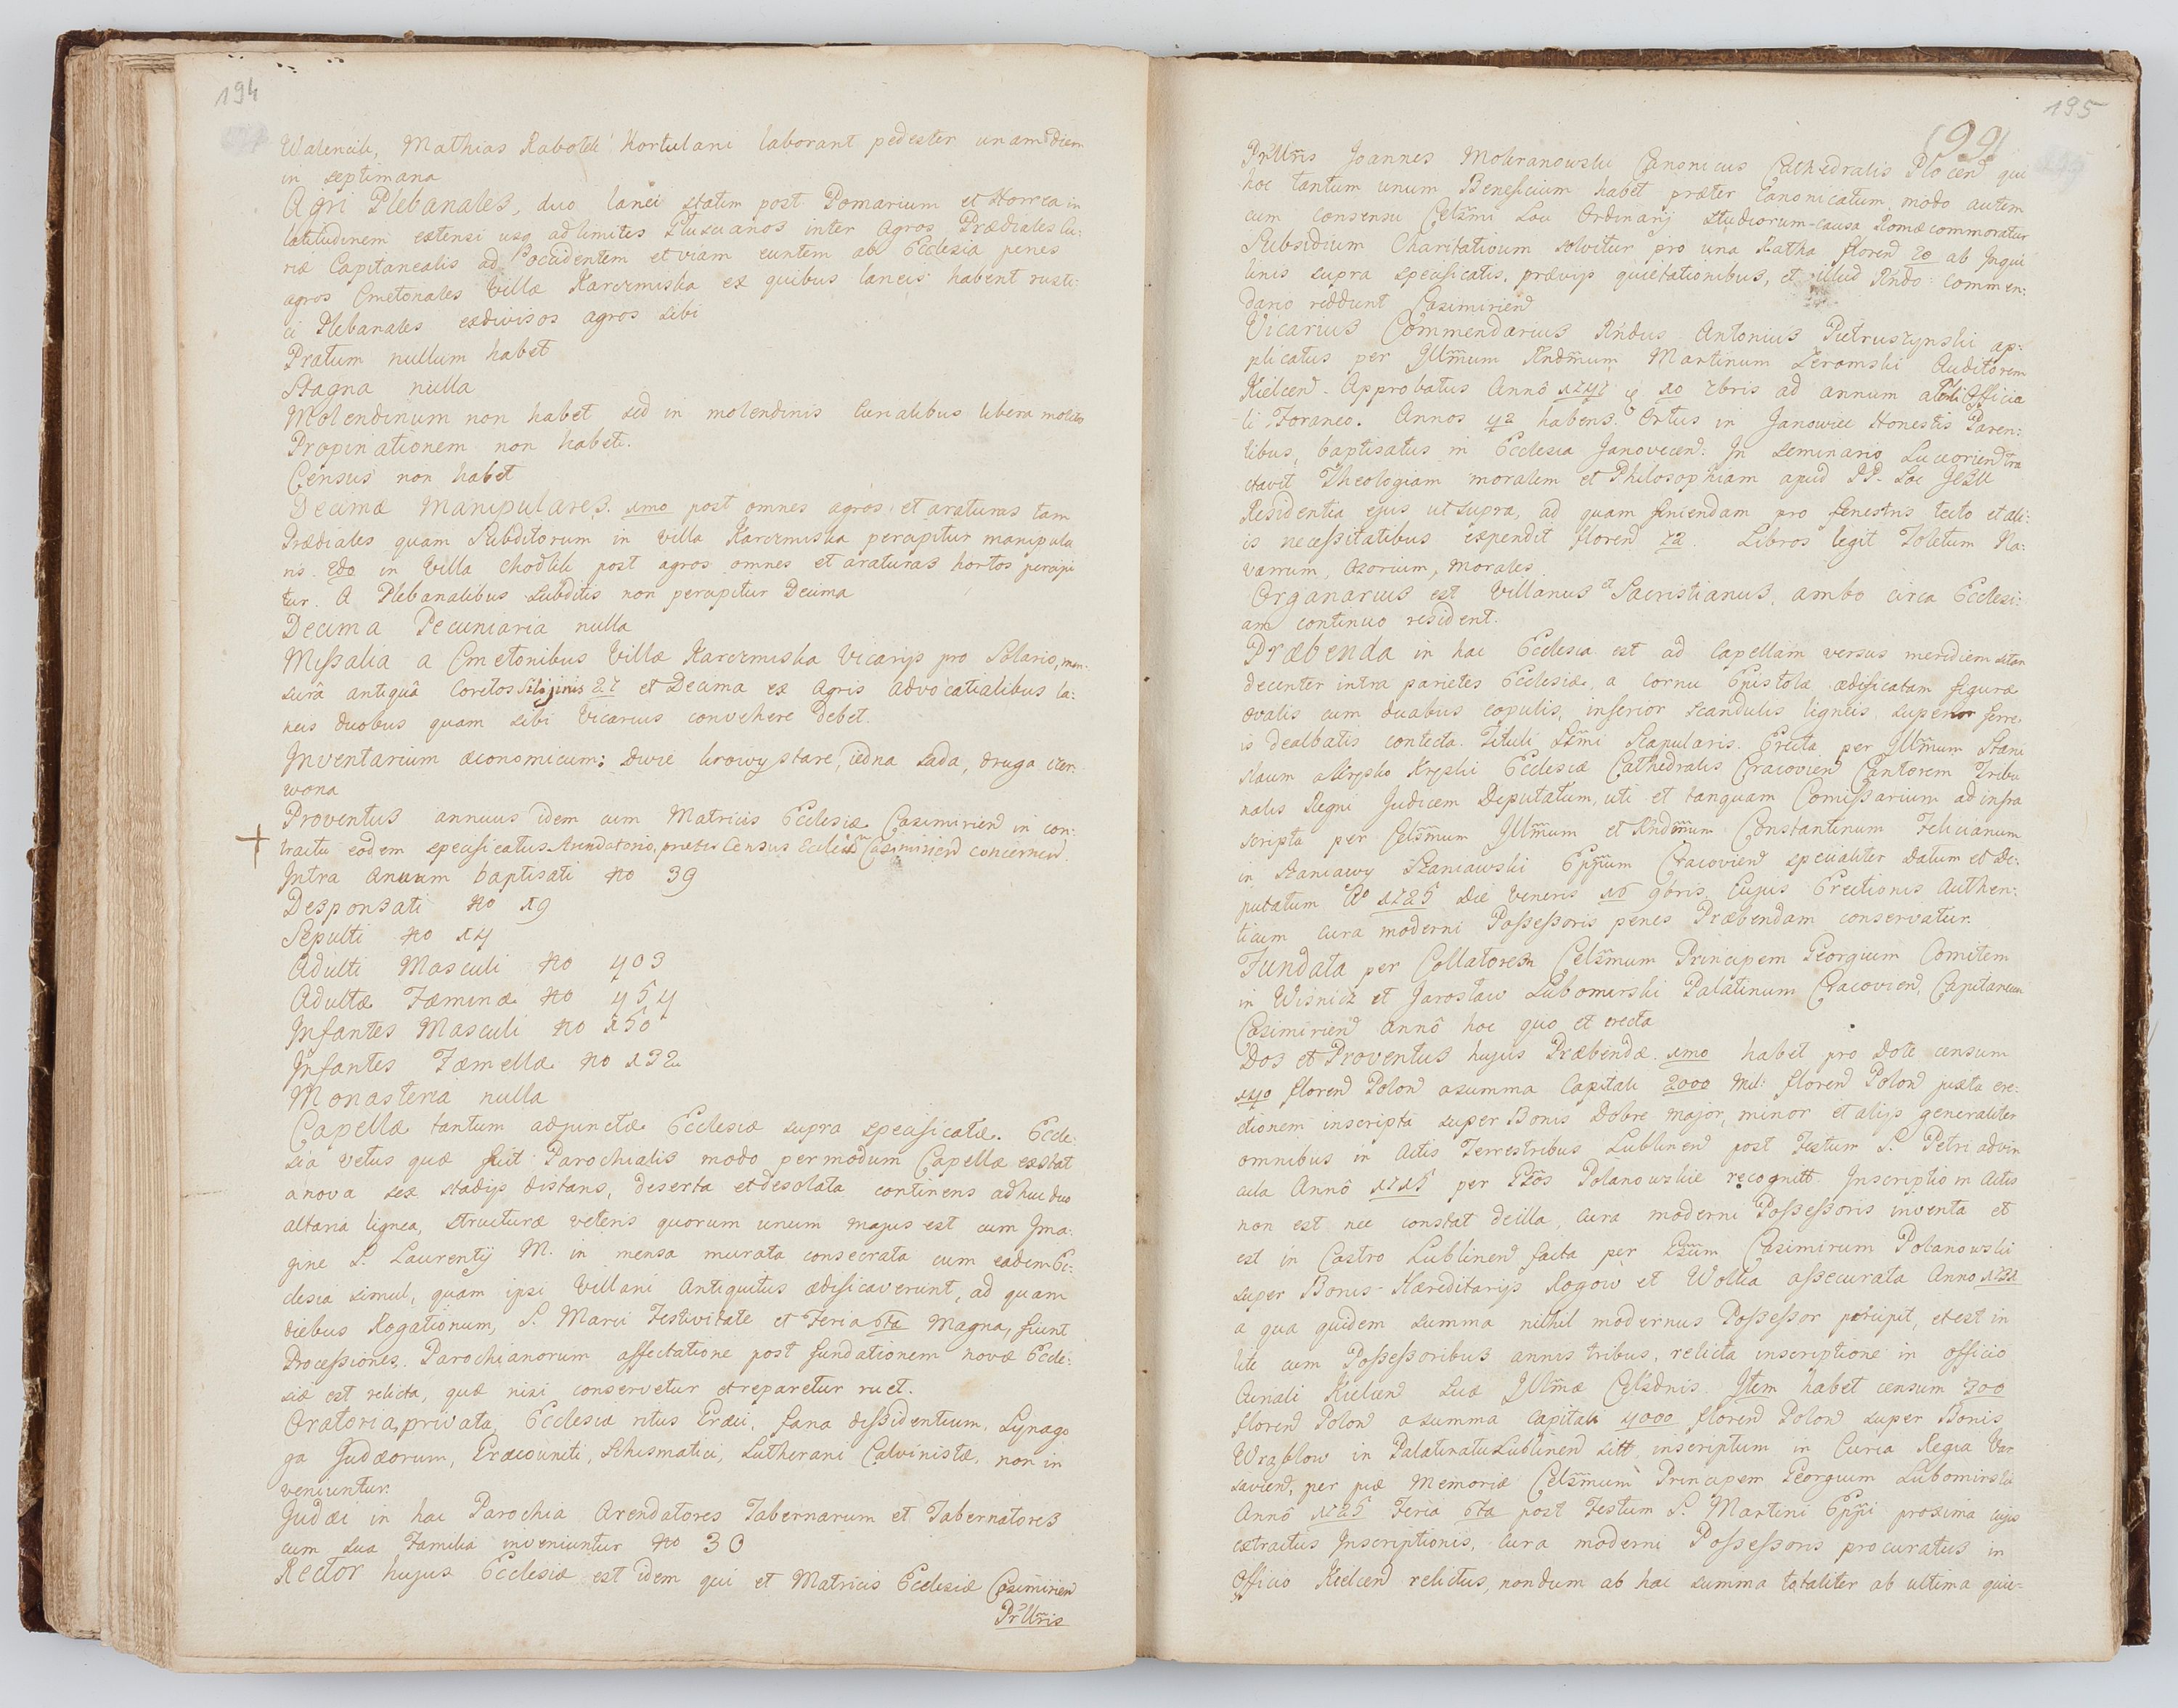 194
Walencik, Mathias Rabotek Hortulani laborant pedester unam diem
in septimana
Agri Plebanales, duo lanei statim post Pomarium et Horrea in
latitudinem extensi usq ad limites Pluscianos inter agros Prædiales Cu:
riæ Capitanealis ad occidentem et viam euntem ab Ecclesia penes
agros Cmetonales Villæ Karczmiska ex quibus laneis habent rusti:
ci Plebanales exdivisos agros sibi
Pratum nullum habet
Stagna nulla
Molendinum non habet sed in molendinis Curialibus libera molitio
Propinationem non habet.
Census non habet
Decimæ Manipulares. 1mo post omnes agros et araturas tam
Prædiales quam Subditorum in Villa Karczmiska percipitur manipula
ris. 2do in Villa Chodlik post agros omnes et araturas hortos percipi
tur. A Plebanalibus Subditis non percipitur Decima
Decima Pecuniaria nulla
Missalia a Cmetonibus Villæ Karczmiska Vicarijs pro Solario, men:
surâ antiquâ Coretos Siliginis 27 et Decima ex Agris advocatialibus la:
neis duobus quam sibi Vicarius convehere debet.
Inventarium œconomicum: Dwie krowy stare, iedna sada, druga czer:
wona
Proventus annuus idem cum Matricis Ecclesiæ Casimirien in con:
tractu eodem specificatus Arendatorio, præter Census Ecclesiæ Casimirien concernen.
Intra Annum baptisati No 39
Desponsati No 19
Sepulti No 14
Adulti Masculi No 403
Adultæ Fæminæ No 454
Infantes Masculi No 150
Infantes Fæmellæ No 132
Monasteria nulla
Capellæ tantum adjunctæ Ecclesiæ supra specificatæ. Eccle:
sia vetus quæ fuit Parochialis modo per modum Capellæ exstat
a nova sex stadijs distans, deserta et desolata continens adhuc duo
altaria lignea, structuræ veteris quorum unum majus est cum Ima:
gine S. Laurentij M. in mensa murata consecrata cum eadem Ec:
clesia simul, quam ipsi Villani Antiquitus ædificaverunt, ad quam
diebus Rogationum, S. Marci Festivitate et Feria 6ta Magna, fiunt
Processiones. Parochianorum affectatione post fundationem novæ Eccle:
siæ est relicta, quæ nisi conservetur et reparetur ruet.
Oratoria privata, Ecclesiæ ritus Græci, fana dissidentium, Synago
ga Judæorum, Græcouniti, Schismatici, Lutherani Calvinistæ, non in
veniuntur.
Judæi in hac Parochia Arendatores Tabernarum et Tabernatores
cum sua Familia inveniuntur No 30
Rector hujus Ecclesiæ est idem qui et Matricis Ecclesiæ Casimirien
Pr Ill̃ris
195
(99)
Pr Ill̃ris Joannes Mokranowski Canonicus Cathedralis Plocen qui
hoc tantum unum Beneficium habet præter Canonicatum, modo autem
cum consensu Celsm̃i Loci Ordinarij studiorum causa Romæ commoratur
Subsidium Charitativum solvitur pro una Ratha floren 20 ab Inqui
linis supra specificatis, prævijs quietationibus, et illud Rndo Commen:
dario reddunt Casimirien
Vicarius Commendarius Rndus Antonius Pietruszynski ap:
plicatus per Illm̃um Rndm̃um Martinum Zeromski Auditorem
Kielcen. Approbatus Annô 1747 10 7bris ad annum a Officia
li Foraneo. Annos 42 habens. Ortus in Janowiec Honestis Paren:
tibus, baptisatus in Ecclesia Janovecen. In Seminario Luceorien tra
ctavit Theologiam moralem et Philosophiam apud PP. Soc JESU
Residentia ejus ut supra, ad quam finiendam pro fenestris tecto et ali:
is necessitatibus expendit floren 72. Libros legit Toletum Na:
varrum, Azorium, morales.
Organarius est Villanus et Sacristianus, ambo circa Ecclesi:
am continuo resident.
Præbenda in hac Ecclesia est ad Capellam versus meridiem sitam
decenter intra parietes Ecclesiæ, a cornu Epistolæ ædificatam figuræ
ovalis cum duabus copulis, inferior scandulis ligneis superior ferre
is dealbatis contecta. Tituli SSm̃i Scapularis. Erecta per Illm̃um Stani
slaum a Krzsko Krzski Ecclesiæ Cathedralis Cracovien Cantorem Tribu
nalis Regni Judicem Deputatum, uti et tanquam Comissarium ad infra
scripta per Celsm̃um Illm̃um et Rndm̃um Constantinum Felicianum
in Szaniawy Szaniawski Epp̃um Cracovien specialiter Datum et De:
putatum Ao 1725 Die Veneris 16 9bris. Cujus Erectionis Authen:
ticum cura moderni Possessoris penes Præbendam conservatur.
Fundata per Collatorem Celsm̃um Principem Georgium Comitem
in Wisnicz et Jaroslaw Lubomirski Palatinum Cracovien, Capitaneum
Casimirien annô hoc quo et erecta
Dos et Proventus hujus Præbendæ. 1mo habet pro Dote censum
140 floren Polon a summa Capitali 2000 Mil: floren Polon juxta ere:
ctionem inscripta super Bonis Dobre major, minor et alijs generaliter
omnibus in Actis Terrestribus Lublinen post Festum S. Petri ad vin
cula Annô 1715 per Polanowskie recognitt. Inscriptio in Actis
non est nec constat de illa, cura moderni Possessoris inventa et
est in Castro Lublinen facta per Casimirum Polanowski
super Bonis Hæreditarijs Rogow et Wolka assecurata Anno 1731
a qua quidem summa nithil modernus Possessor percipit, et est in
lite cum Possessoribus annis tribus, relicta inscriptione in officio
Curiali Kielcen Suæ Illm̃æ Celsdnis. Item habet censum 200
floren Polon a summa Capitali 4000 floren Polon super Bonis
Wrzblow in Palatinatu Lublinen sitt inscriptum in Curia Regia Var
savien, per piæ Memoriæ Celsm̃um Principem Georgium Lubomirski
Annô 1725 Feria 6ta post Festum S. Martini Epp̃i proxima cujus
extractus Inscriptionis, cura moderni Possessoris procuratus in
Officio Kielcen relictus, nondum ab hac summa totaliter ab ultima quie-